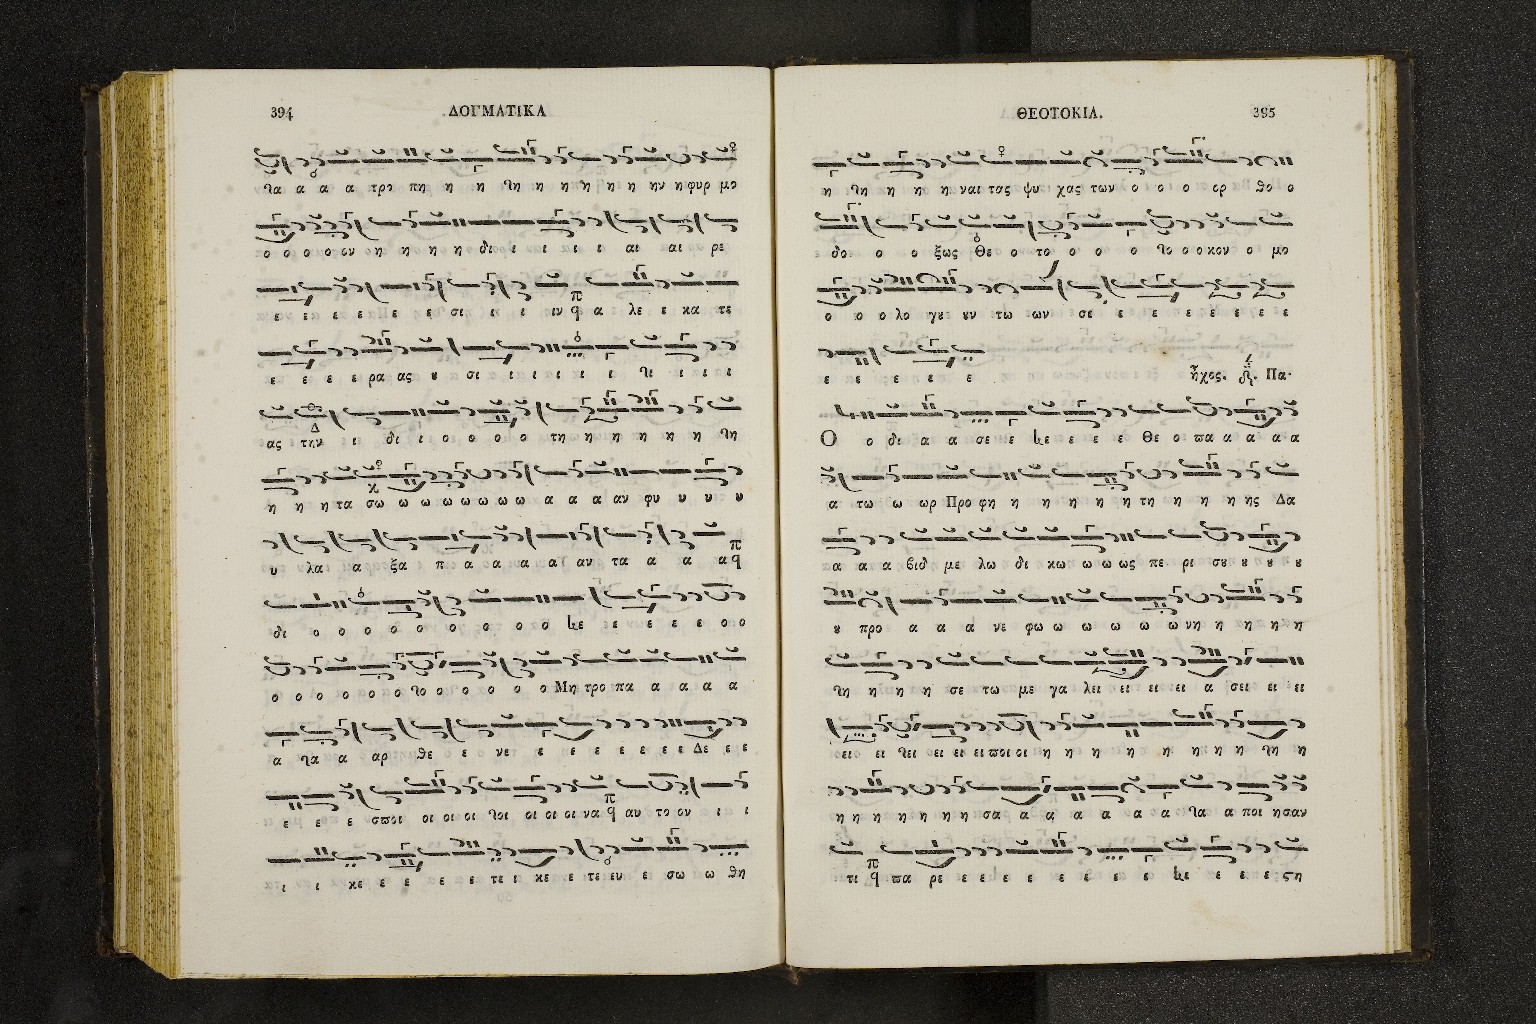 394 ΔΟΓΜΑΤΙΚΑ
τα α α α τρο πη η η τη η η η η η ην η φυρ μο
ο ο ο ο ον η η η η δι ι ι ι ι ι αι αι ρε
ε ε ε ε ε ε σι ι ι ιν α λε ε κα τε
ε ε ε ε ρα ας υ σι ι ι ι ι ι τι ι ι ι
ας την ι δι ι ο ο ο ο τη η η η η η τη
η η η τα σω ω ω ω ω ω ω ω α α α αν φυ υ υ υ
υ λα α ξα π α α α α αν τα α α α
δι ο ο ο ο ο ο ο ο ο ο ε ε ε ε ε ο ο
ο ο ο ο ο ο ο το ο ο ο ο ο Μη τρο πα α α α α
α τα α αρ θε ε ε νε ε ε ε ε ε ε ε Δε ε ε
ε ε ε σποι οι οι οι τοι οι οι οι να αυ το ον ι ι
ι ι κε ε ε ε ε τε ι κε ε τε ευ ε σω ω θη
ΘΕΟΤΟΚΙΑ. 395
η τη η η η ναι τας ψυ χας των ο ο ο ορ θο ο
δο ο ο ο ξως Θε ο το ο ο ο το ο ο κον ο μο
ο ο ο λο γου ουν τω ων σε ε ε ε ε ε ε ε
ε ε ε ε ε ἦχος. Πα.
Ο ο δι α α σε ε ε ε ε ε Θε ο πα α α α α
α τω ω ωρ Προ φη η η η η η τη η η η ης Δα
α α α βιδ με λω δι κω ω ω ως πε ρι σου ου ου ου ου
ου προ α α α νε φω ω ω ω ω ω νη η η η η
τη η η η σε τω με γα λει ει ει ει α σει ει ει
ει ει τει ει ει ει ποι οι η η η η η η η η τη η
η η η η η η η σα α α α α α α τα α ποι ησαν
τι πα ρε ε ε ε ε ε ε ε ε ε ε ε στη